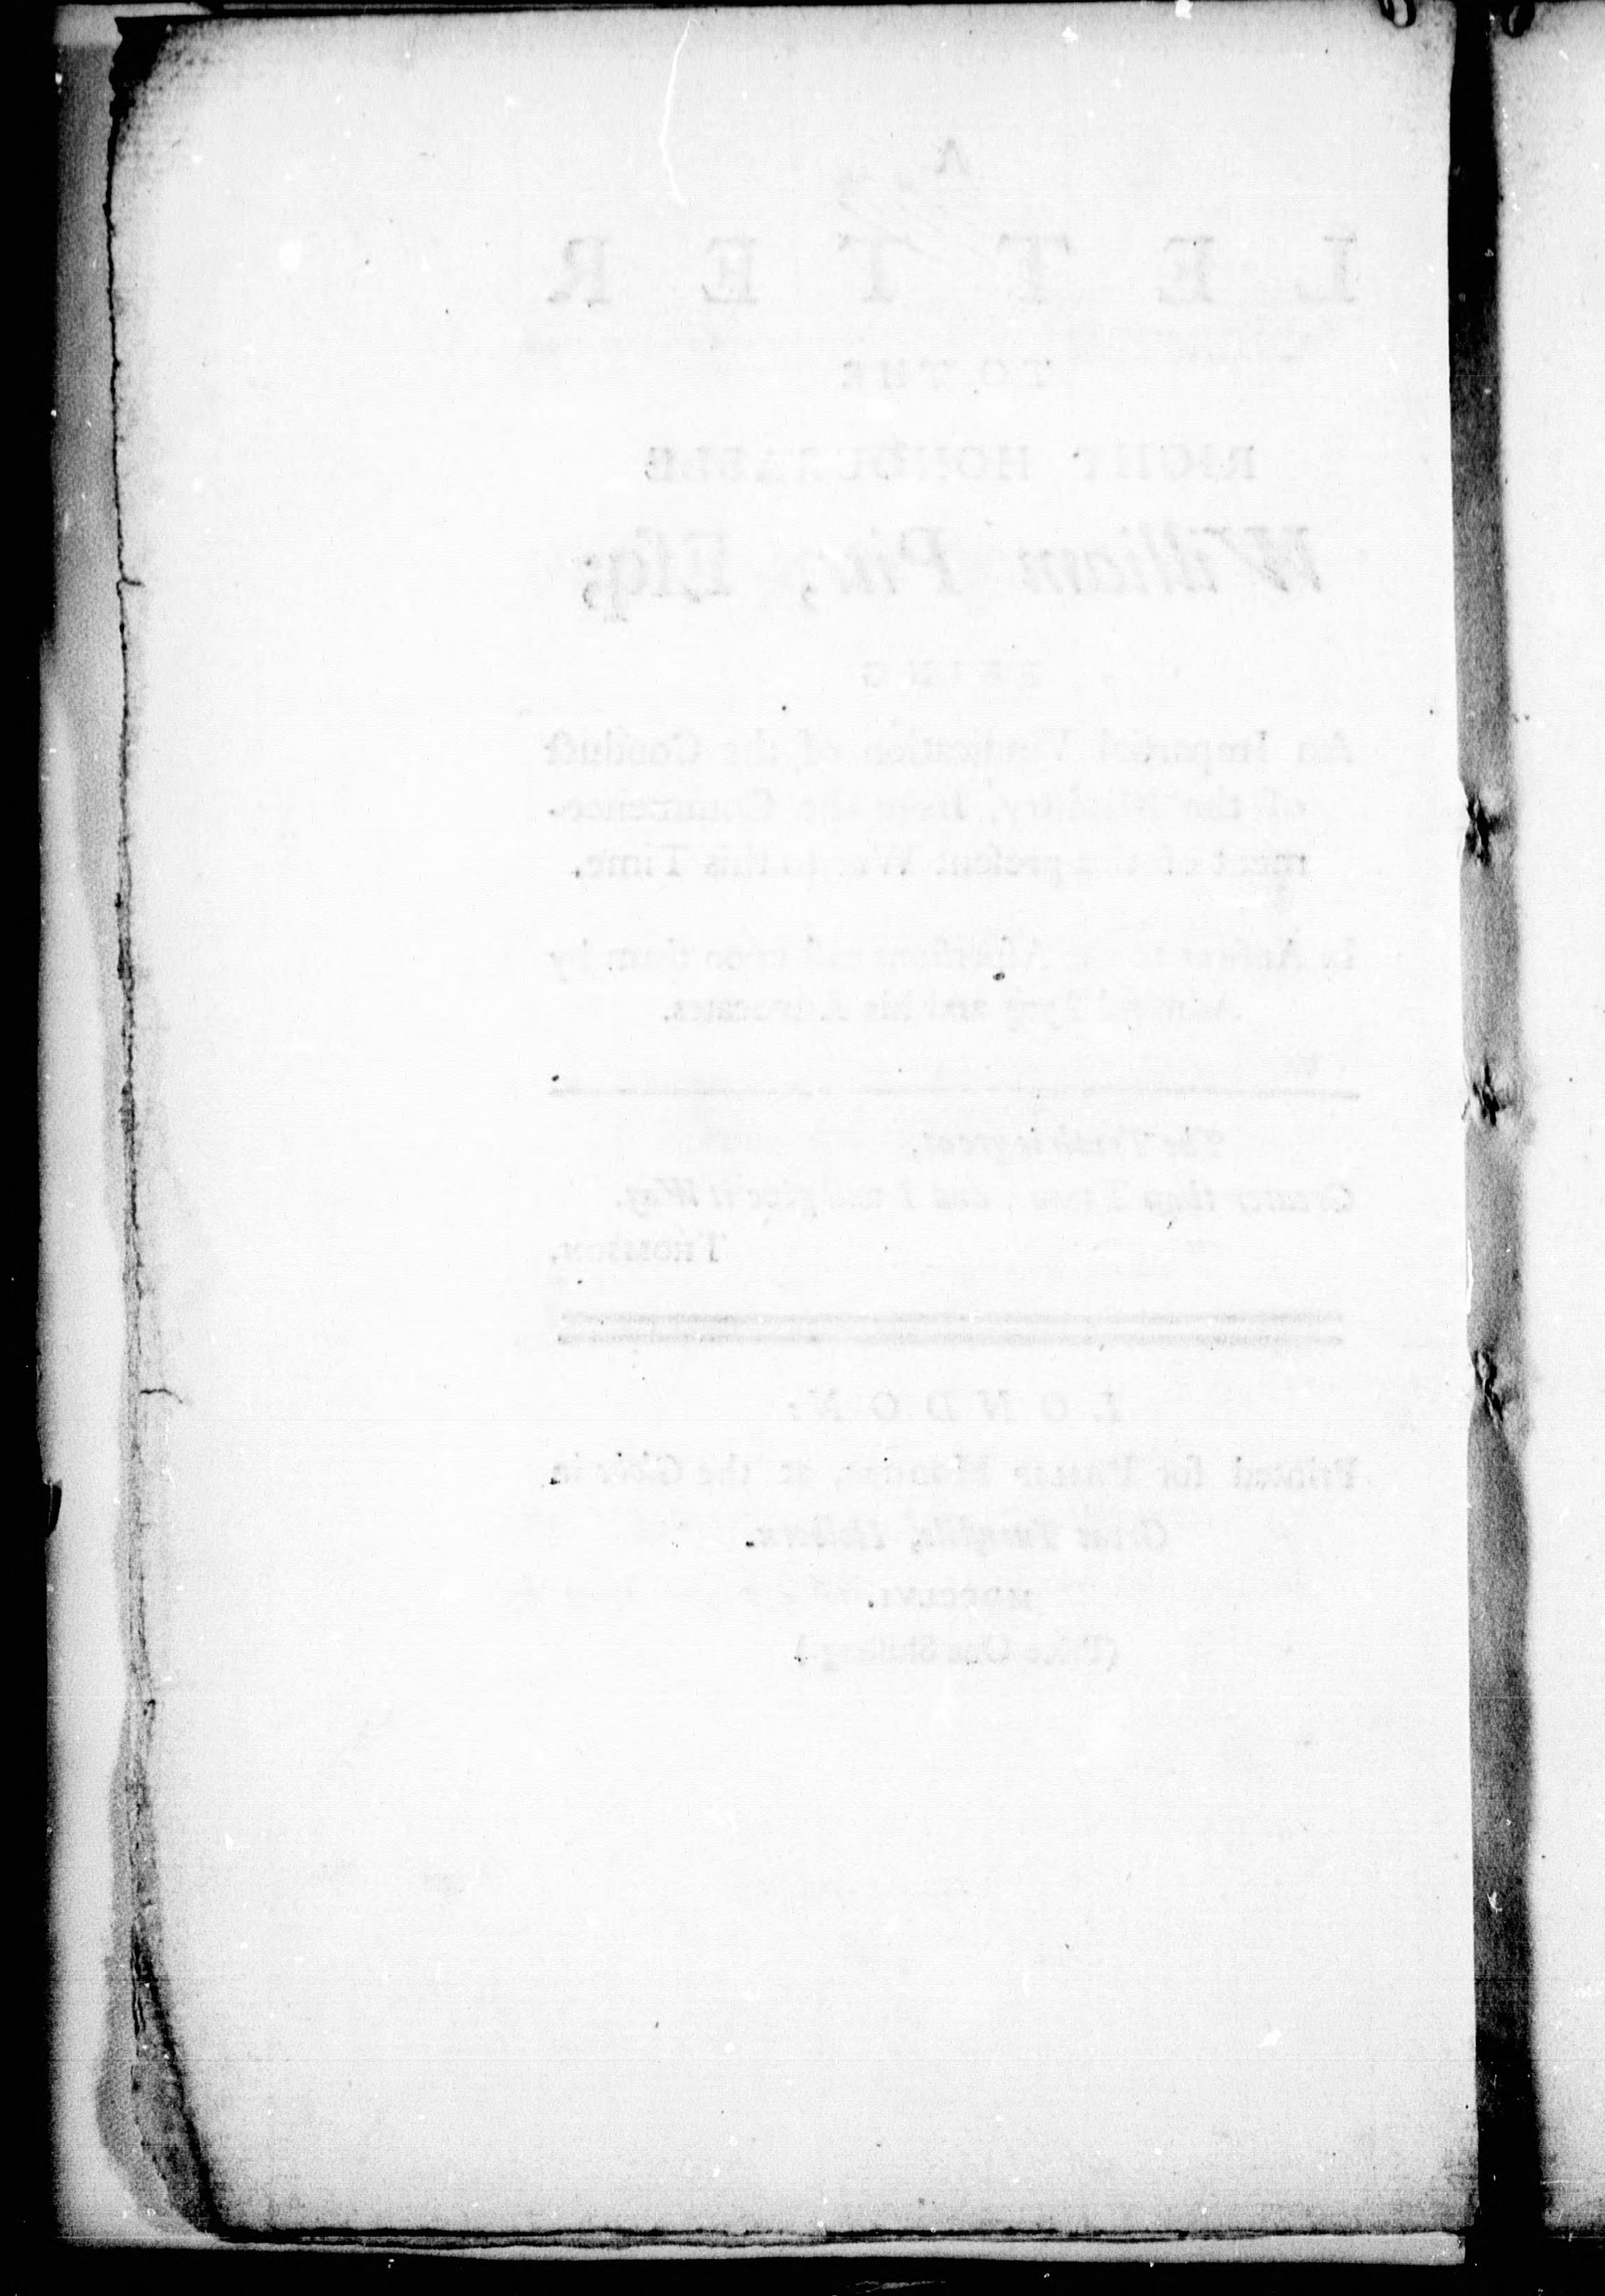 A
LETTER
TO THE
RIGHT HONOURABLE
William Pitt, Esq;
BEING
An Impartial Vindication of the Conduct
of the Ministry, from the Commence-
ment of the present War to this Time.
In Answer to the Aspersions cast upon them by
Admiral Byng and his Advocates.
The Truth is great,
Greater than Terror, and I must give it Way.
THOMSON.
LONDON:
Printed for PHILIP HODGES, at the Globe in
Great Turnstile, Holborn.
MDCCLVI.
(Price One Shilling.)